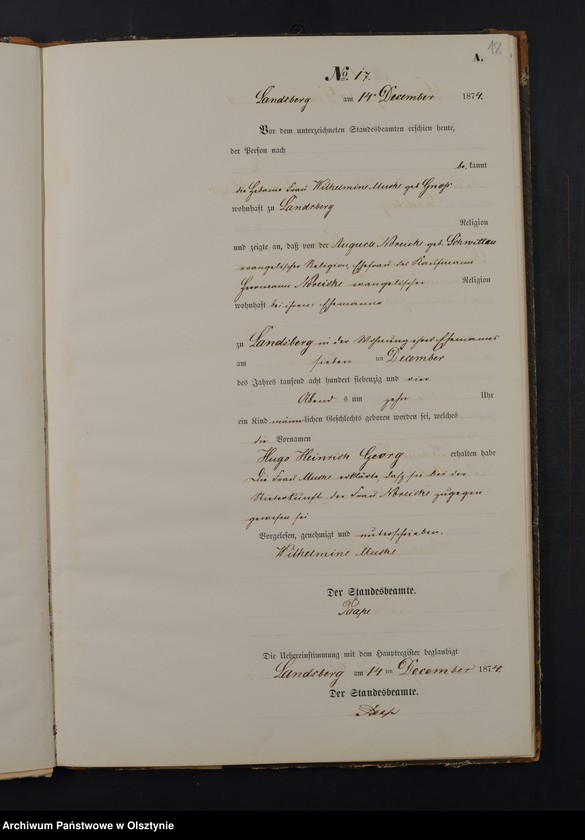 18
A.
No. 17.
Landsberg am 14 December 1874.
Vor dem unterzeichneten Standesbeamten erschien heute,
der Person nach
be kannt
die Hebamme Frau Wilhelmine geb
wohnhaft zu Landsberg
Religion
und zeigte an, daß von der Auguste geb. Schwittau
evangelischer Religion, Ehefrau des Kaufmann
Herrmann evangelischer Religion
wohnhaft bei ihrem Ehemanne
zu Landsberg in der Wohnung ihres Ehemannes
am sieben ten December
des Jahres tausend acht hundert siebenzig und vier
Abend s um zehn Uhr
ein Kind männ lichen Geschlechts geboren worden sei, welches
die Vornamen
Hugo Heinrich Georg erhalten habe
Die Frau erklärte, daß sie bei der
Niederkunft der Frau zugegen
gewesen sei
Vorgelesen, genehmigt und unterschrieben.
Wilhelmine
Der Standesbeamte.
Die Uebereinstimmung mit dem Hauptregister beglaubigt
Landsberg am 14 ten December 1874.
Der Standesbeamte.
Archiwum Państwowe w Olsztynie